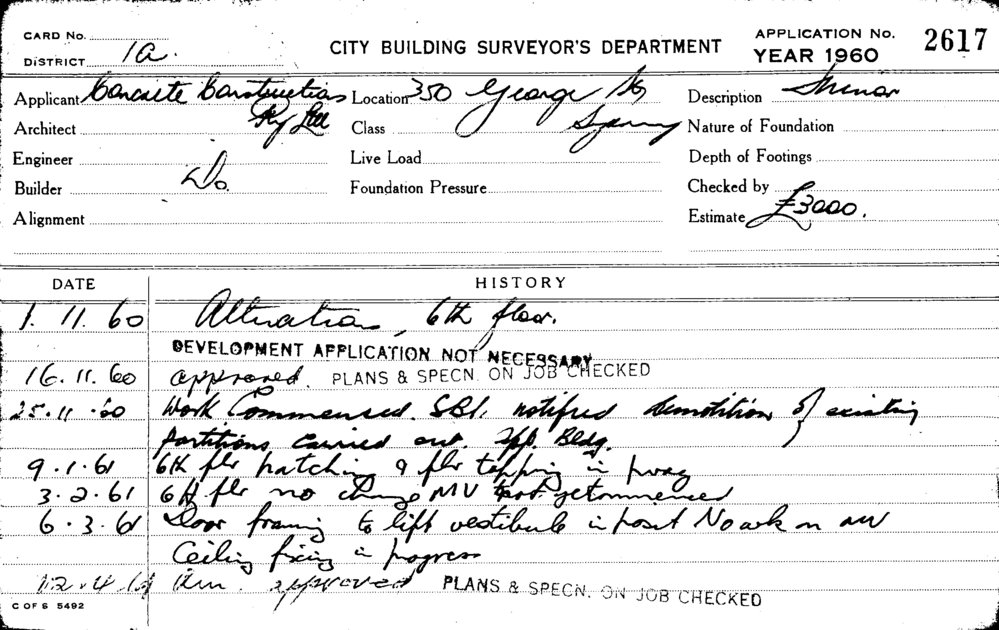 CARD No.
DISTRICT 1a.
CITY BUILDING SURVEYOR'S DEPARTMENT
APPLICATION No. 2617
YEAR 1960
Applicant Concrete Constructions Location 350 George St Description
Pty Ltd Sydney
Architect Class Nature of Foundation
Engineer Live Load Depth of Footings
Builder Do. Foundation Pressure Checked by
Alignment Estimate £3000.
DATE HISTORY
1. 11. 60 Alterations, 6th floor.
DEVELOPMENT APPLICATION NOT NECESSARY
16. 11. 60 approved. PLANS & SPECN. ON JOB CHECKED
25. 11. 60 Work Commenced. SBI. notified demolition of existing
partitions carried out. Bldg.
9. 1. 61 6th flr patching & flr topping in prog
3. 2. 61 6th flr no change MV not yet commenced
6. 3. 61 Door framing to lift vestibule in posit No wk on MV
Ceiling fixing in progress
12. 4. 61 approved PLANS & SPECN. ON JOB CHECKED
C OF S 5492